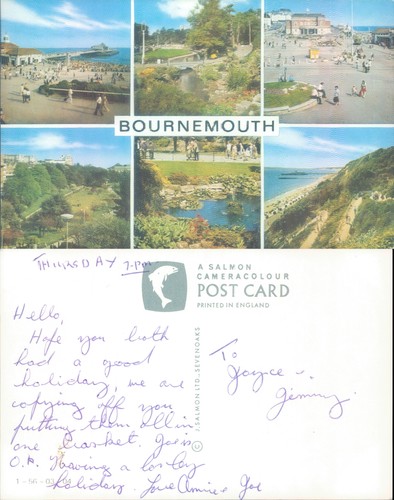 BOURNEMOUTH
THURSDAY 7-PM
A SALMON
CAMERACOLOUR
POST CARD
PRINTED IN ENGLAND
Hello,
Hope you both
had a good
holiday, we are
copying off you
putting them All in
one basket. Joe is
O.K. Having a lovley
holiday. Love Annie & Joe
J. SALMON LTD., SEVENOAKS
To
Joyce
Jimmy.